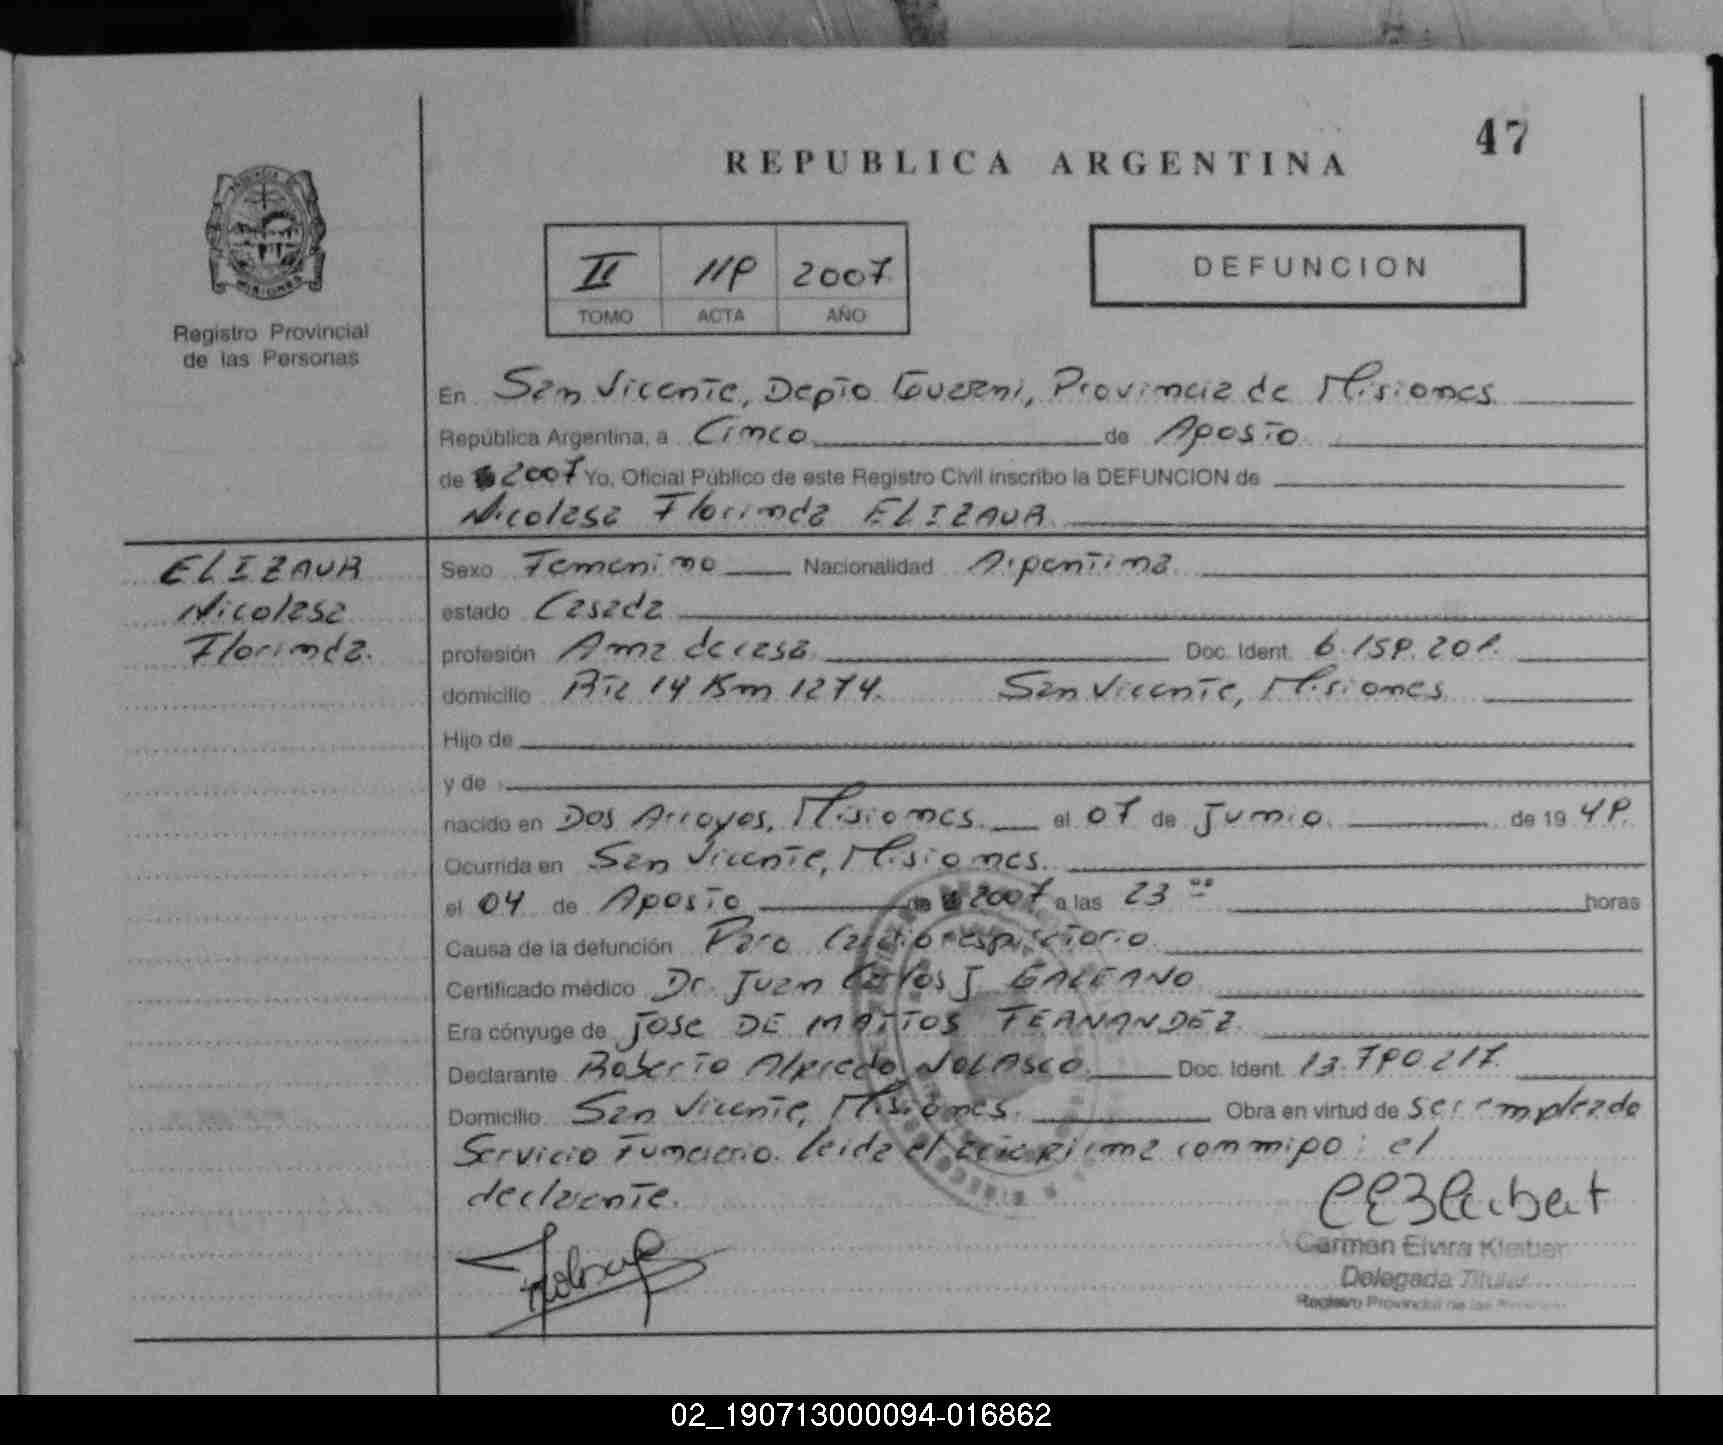 47
REPUBLICA ARGENTINA
II 118 2007
TOMO ACTA AÑO
DEFUNCION
Registro Provincial
de las Personas
En San Vicente, Depto Guarani, Provincia de Misiones
República Argentina, a Cinco de Agosto
de 2007 Yo, Oficial Público de este Registro Civil inscribo la DEFUNCION de
Nicolasa Florinda ELIZAUR
ELIZAUR
Nicolasa
Florinda.
Sexo Femenino Nacionalidad Argentina
estado Casada
profesión Ama de casa Doc. Ident. 6.158.208.
domicilio Rta 14 Km 1274. San Vicente, Misiones
Hijo de
y de
nacido en Dos Arroyos, Misiones el 07 de Junio de 19 48.
Ocurrida en San Vicente, Misiones.
el 04 de Agosto de 2007 a las 23 horas
Causa de la defunción Paro Cardiorespiratorio
Certificado médico Dr. Juan Carlos J. GALEANO
Era cónyuge de Jose DE MATTOS FERNANDEZ.
Declarante Roberto Alfredo NOLASCO Doc. Ident. 13.780.217.
Domicilio San Vicente, Misiones. Obra en virtud de ser empleado
Servicio Funerario. leida el acta firma conmigo: el
declarante.
Carmen Elvira Kleiber
Delegada Titular
Registro Provincial de las Personas
02_190713000094-016862